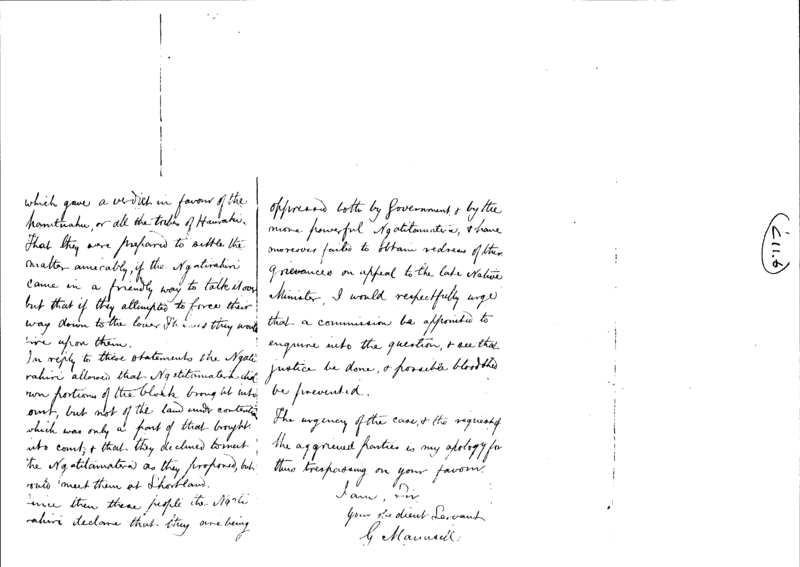 which gave a verdict in favour of the
or all the tribes of Hauraki.
That they were prepared to settle the
matter amicably, if the Ngatirahiri
came in a friendly way to talk it over
but that if they attempted to force their
way down to the lower Thames they would
ire upon them.
In reply to these statements the Ngati
rahiri allowed that Ngatitamatera did
own portions of the block brought into
ourt, but not of the land under contentio
which was only a part of that brought
into court; & that they declined to meet
the Ngatitamatera as they proposed, but
would meet them at Shortland.
ince then these people the Ngati
rahiri declare that they are being
oppressed both by Government & by the
more powerful Ngatitamatera, & have
moreover failed to obtain redress of their
grievances on appeal to the late Native
Minister, I would respectfully urge
that a commission be appointed to
enquire into the question, & see that
justice be done, & possible bloodshed
be prevented.
The urgency of the case, & the request of
the aggrieved parties is my apology for
thus trespassing on your favour.
I am, Sir
Your obedient Servant
G Maunsell